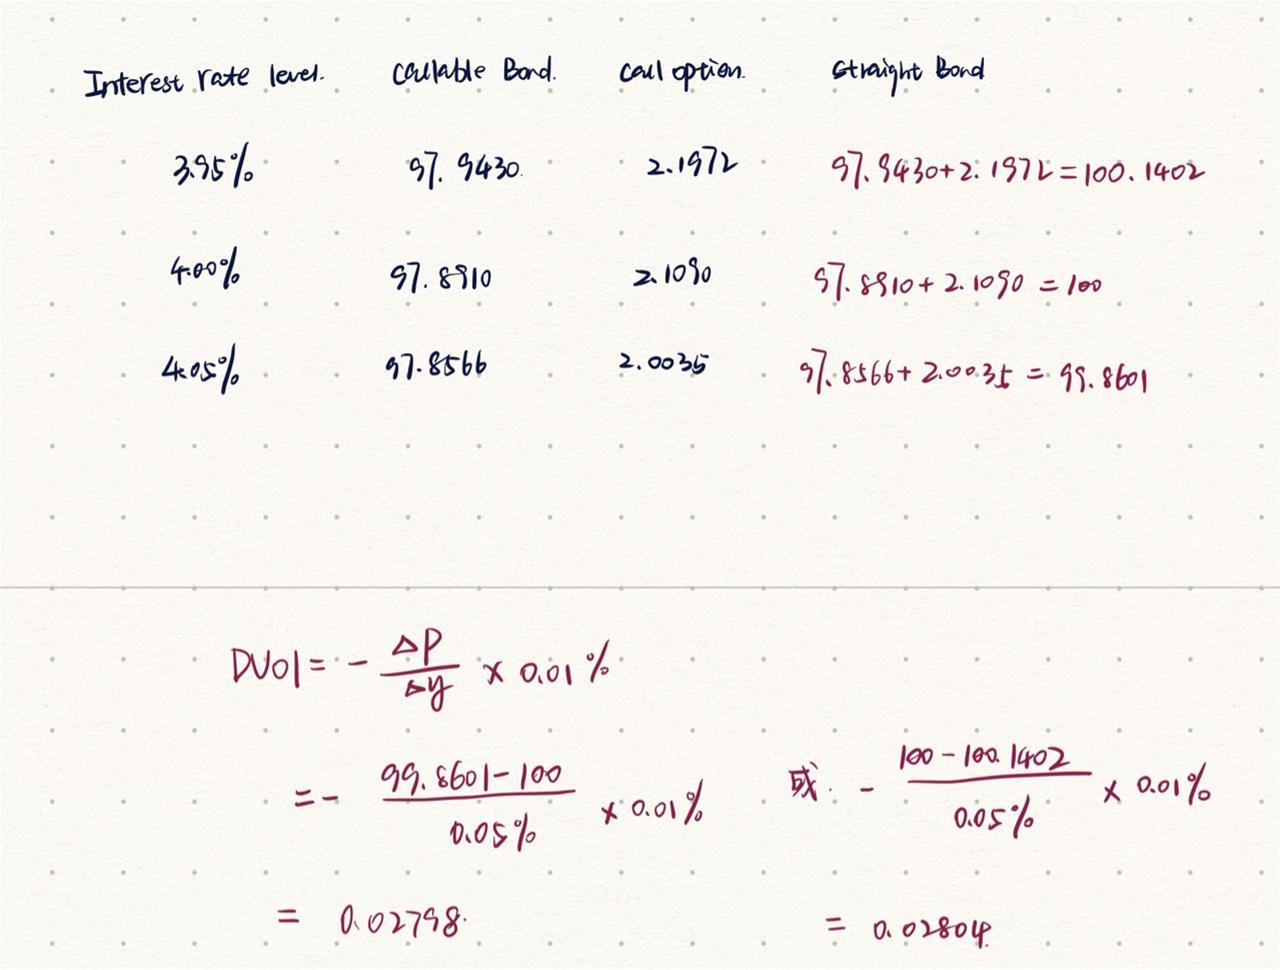 Interest rate level. Callable Bond. Call option. Straight Bond
3.95% 97.9430. 2.1972 97.9430+2.1972=100.1402
4.00% 97.8910 2.1090 97.8910+2.1090=100
4.05% 97.8566 2.0035 97.8566+2.0035=99.8601
DV01=-ΔP/Δy×0.01%
=-(99.8601-100)/0.05%×0.01% 或. -(100-100.1402)/0.05%×0.01%
=0.02798. =0.02804.